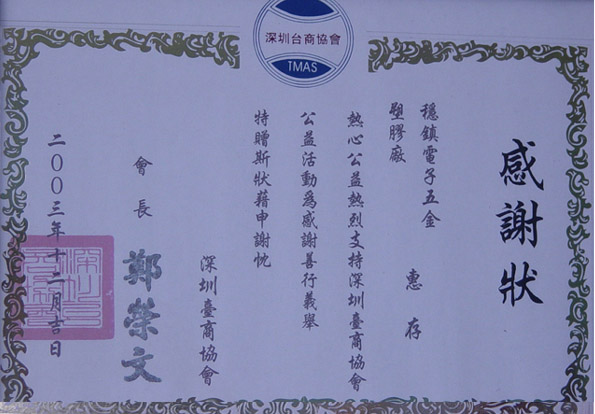 深圳台商協會
TMAS
感謝狀
穩鎮電子五金
塑膠廠
惠存
熱心公益熱烈支持深圳臺商協會
公益活動為感謝善行義舉
特贈斯狀藉申謝忱
深圳臺商協會
會長
鄭榮文
二00三年十二月吉日